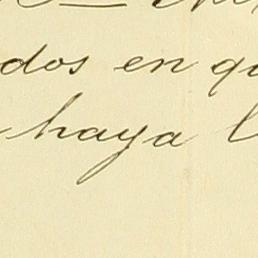 dos en qu
haya l